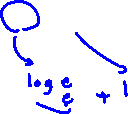 log e
e + 1